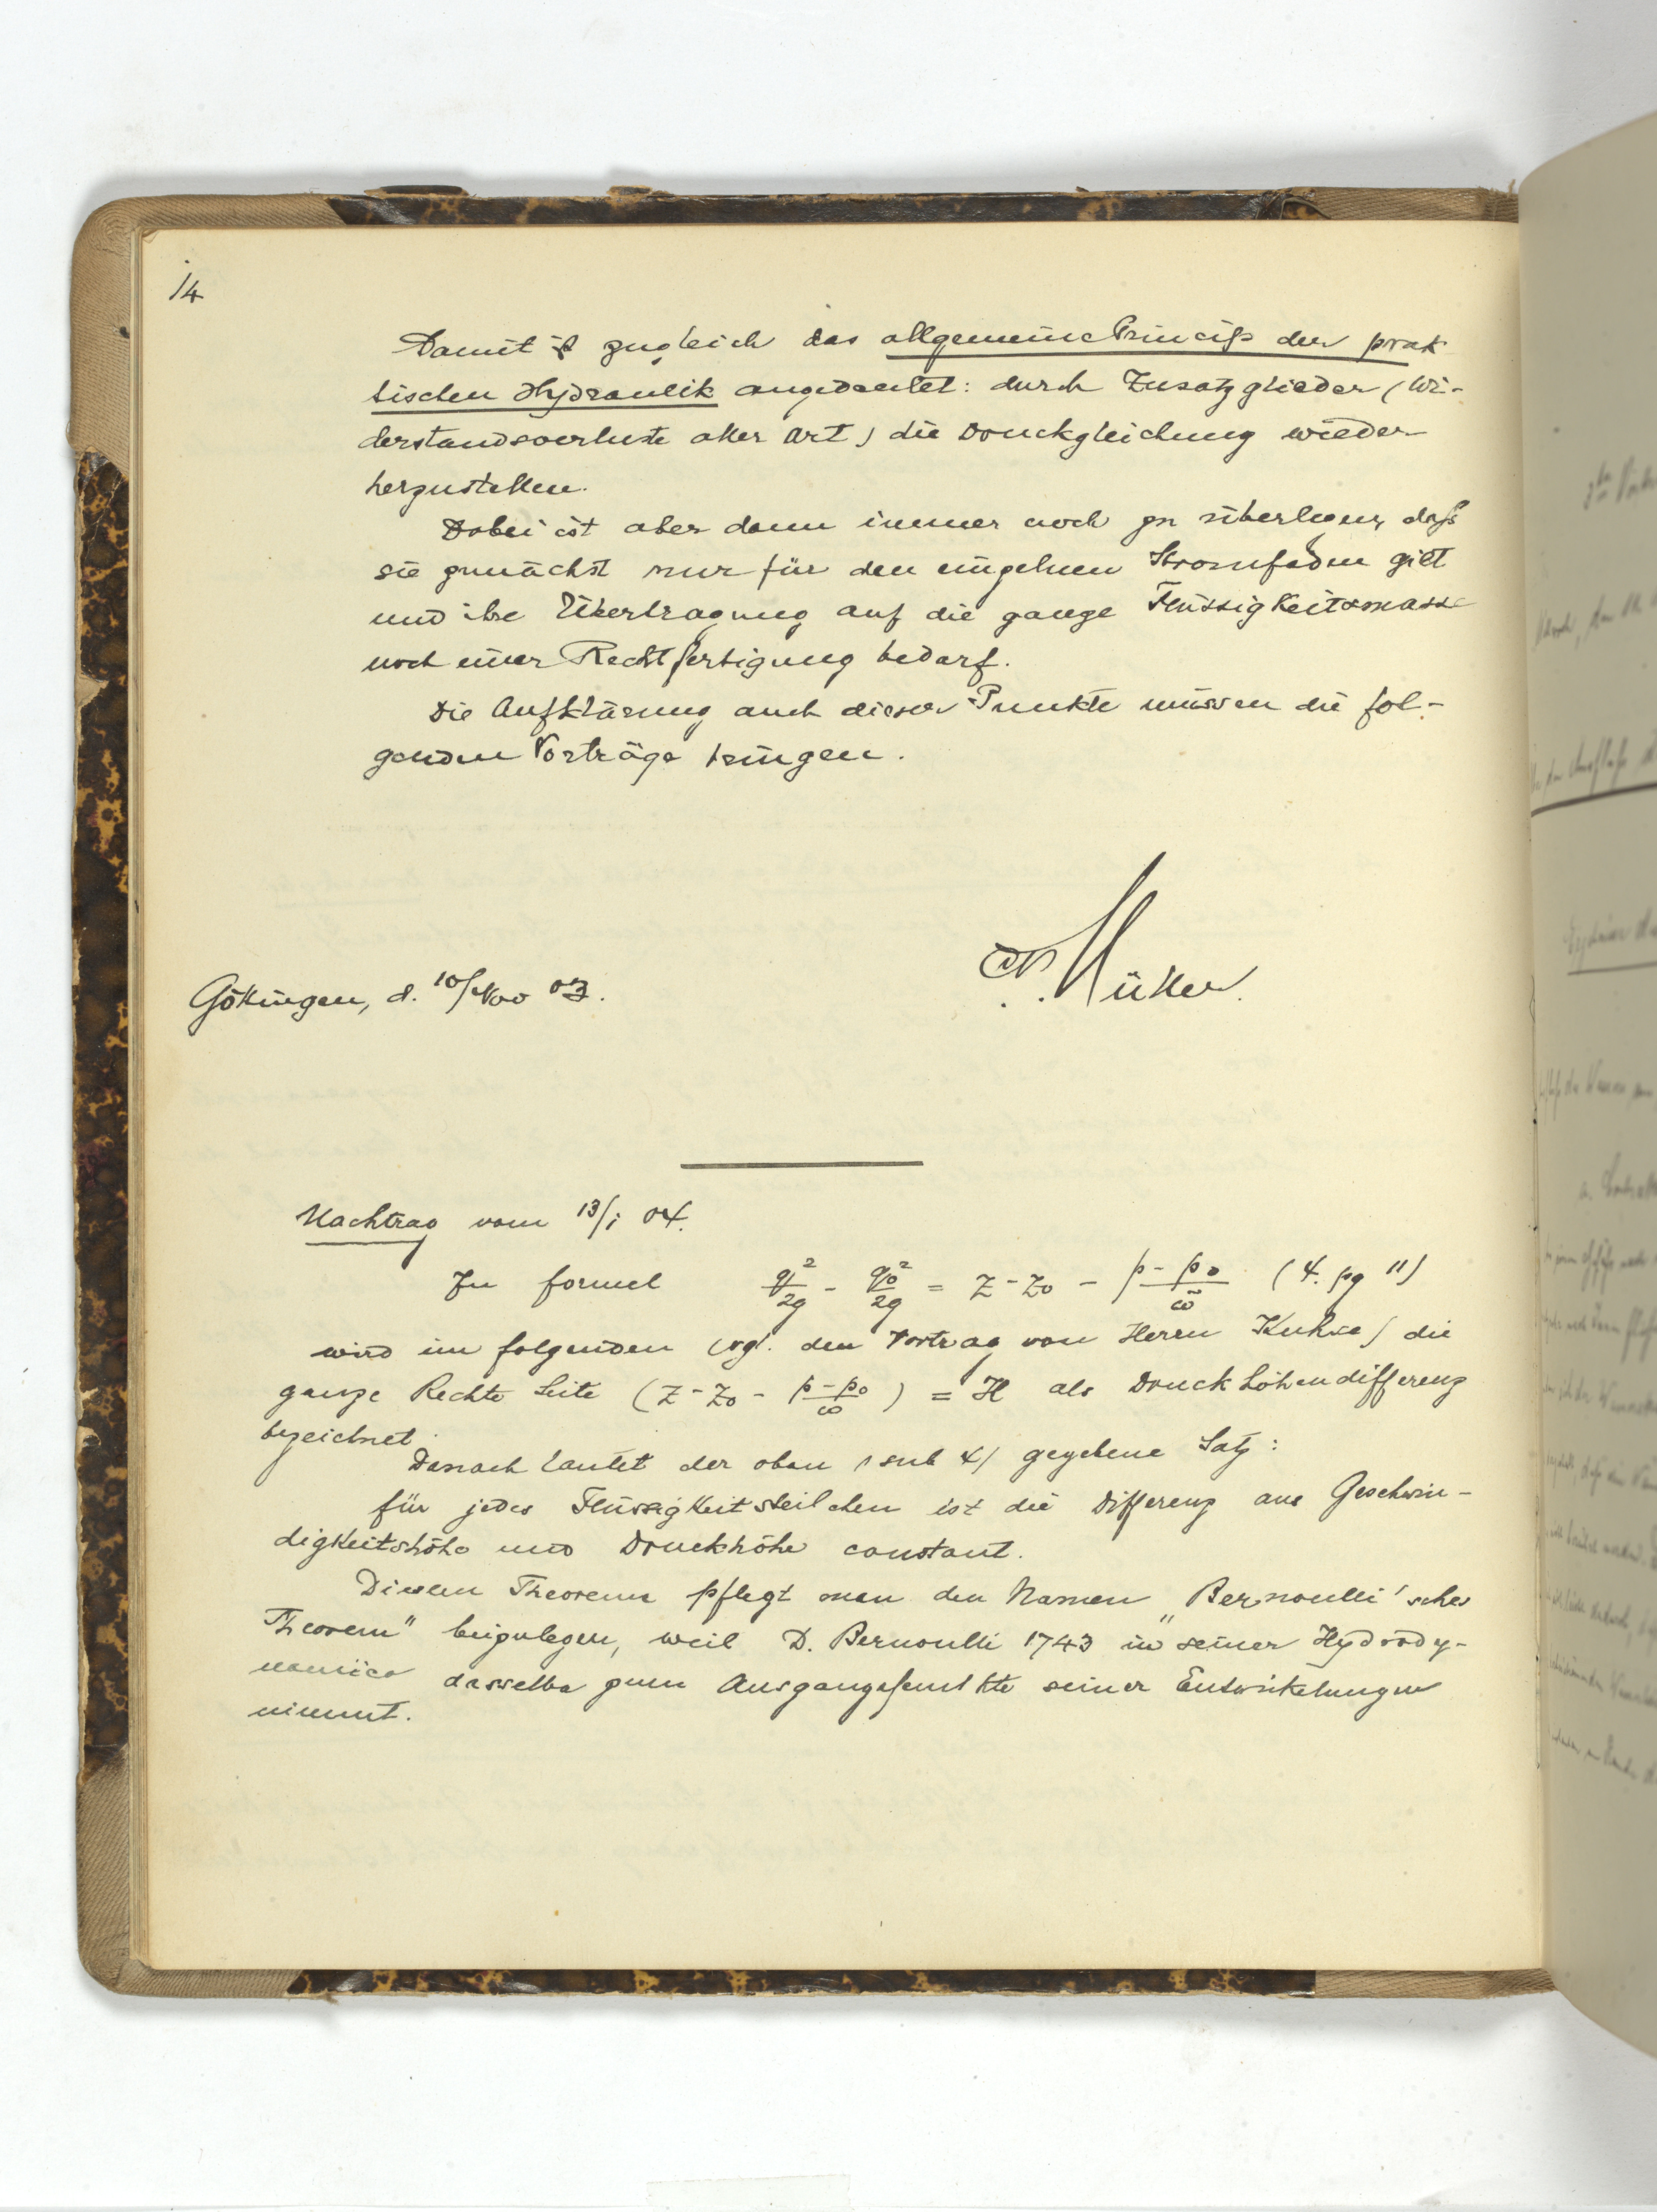 14
Damit ist zugleich das allgemeine Princip der prak
tischen Hydraulik angedeutet: durch Zusatzglieder (Wi-
derstandsverluste aller Art) die Druckgleichung wieder
herzustellen.
Dabei ist aber dann immer noch zu überlegen, daß
sie zunächst nur für den einzelnen Stromfaden gilt
und ihre Übertragung auf die ganze Flüssigkeitsmasse
noch einer Rechtfertigung bedarf.
Die Aufklärung auch dieser Punkte müssen die fol-
genden Vorträge bringen.
Müller.
Göttingen, d. 10/Nov 03.
Nachtrag vom 13/i 04.
In formel q²/2g - q₀²/2g = z - z₀ - (p - p₀)/ω̄ (4. pg 11)
wird im folgenden (vgl. den Vortrag von Herrn) die
ganze Rechte Seite (z - z₀ - (p - p₀)/ω) = H als Druckhöhendifferenz
bezeichnet.
Danach lautet der oben (sub 4) gegebene Satz:
für jedes Flüssigkeitsteilchen ist die Differenz aus Geschwin-
digkeitshöhe und Druckhöhe constant.
Diesem Theorem pflegt man den Namen „Bernoulli'sches
Theorem" beizulegen, weil D. Bernoulli 1743 in seiner Hydrody-
namica dasselbe zum Ausgangspunkte seiner Entwikelungen
nimmt.